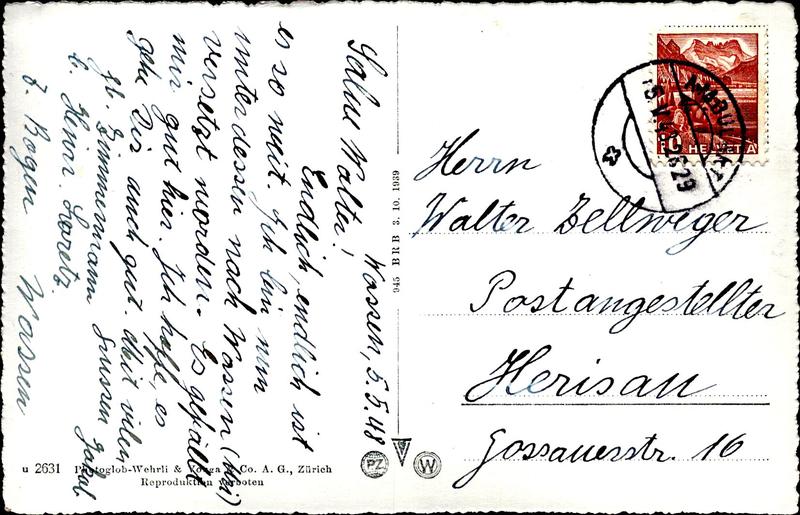 Wassen, 5.5.48
Salue Walter!
Endlich, endlich ist
es so weit. Ich bin nun
unterdessen nach Wassen (Uri)
versetzt worden. Es gefällt
mir gut hier. Ich hoffe, es
gehe Dir auch gut. Mit vilen
Gr. Zimmermann Grussen
b. Heinr. Loretz
z. Bogen Wassen
945 BRB 3. 10. 1939
HELVETIA
Herrn
Walter Zellweger
Postangestellter
Herisau
Gossauerstr. 16
u 2631 Photoglob-Wehrli & Vouga & Co. A. G., Zürich
Reproduktion verboten
PZ
W